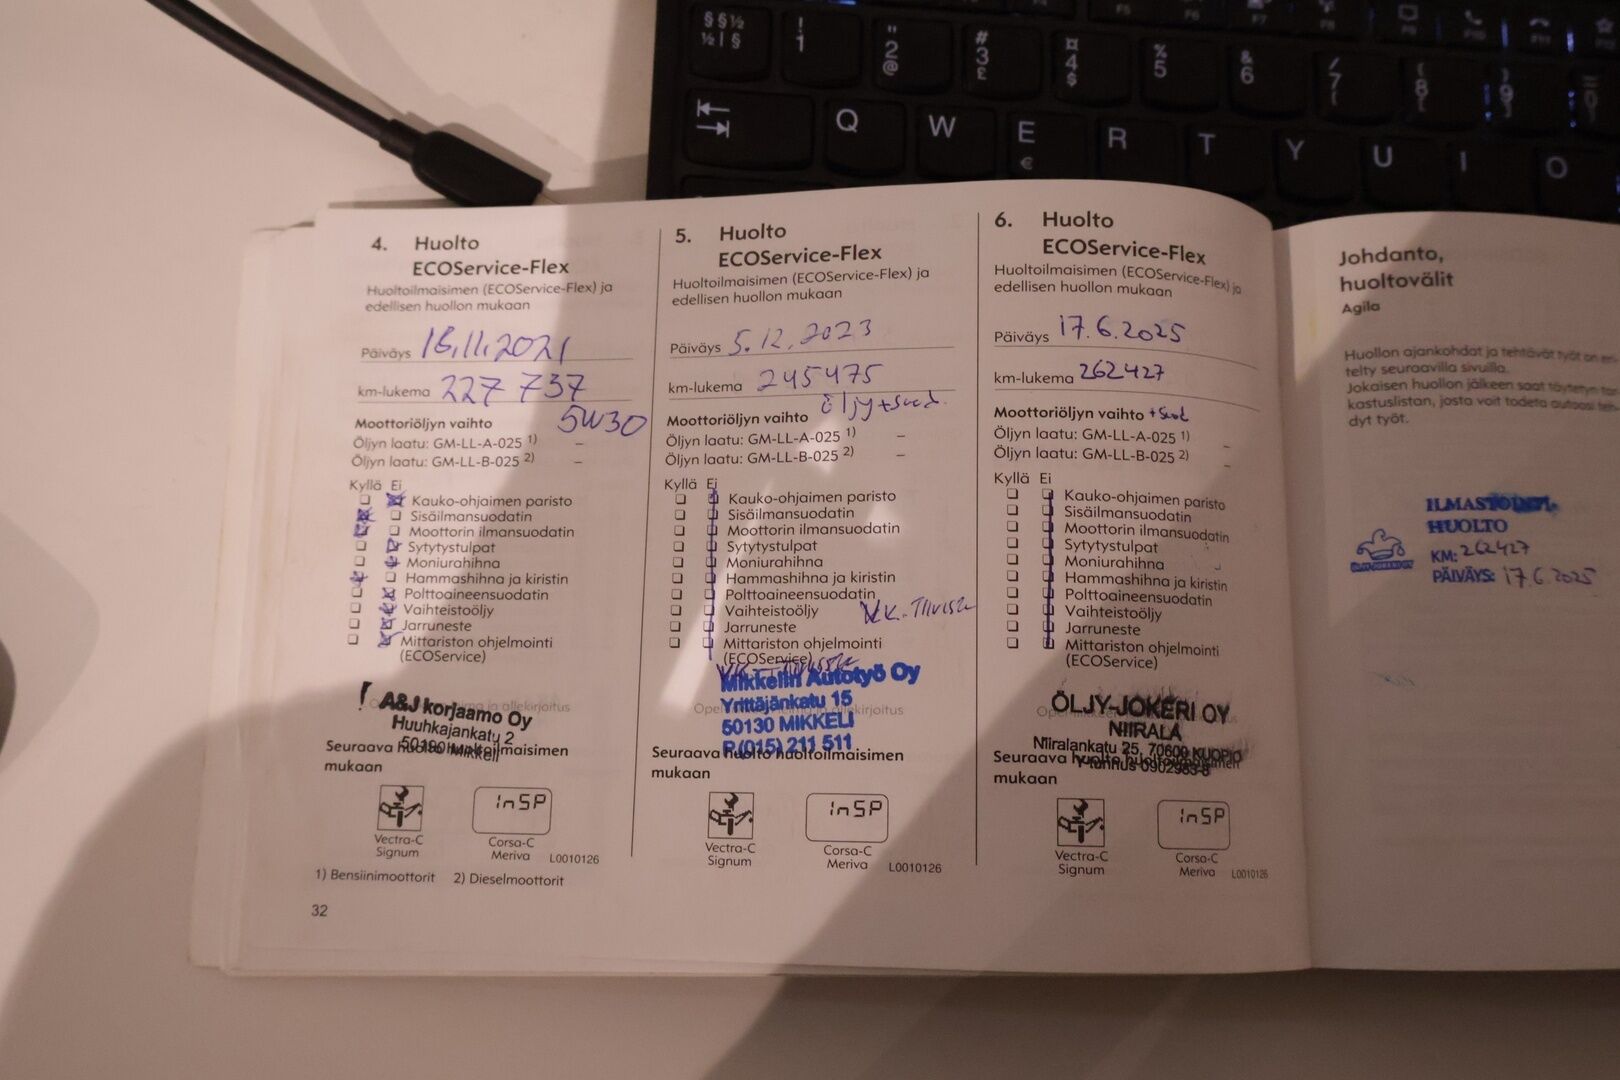 § § ½
½ | §
!
1
"
2
@
#
3
£
¤
4
$
%
5
&
6
/
7
{
(
8
[
)
9
]
F5
F6
F7
F8
F9
F10
Q
W
E
€
R
T
Y
U
I
O
4. Huolto
ECOService-Flex
Huoltoilmaisimen (ECOService-Flex) ja
edellisen huollon mukaan
Päiväys 16.11.2021
km-lukema 227 737
Moottoriöljyn vaihto 5W30
Öljyn laatu: GM-LL-A-025 1) –
Öljyn laatu: GM-LL-B-025 2) –
Kyllä Ei
Kauko-ohjaimen paristo
Sisäilmansuodatin
Moottorin ilmansuodatin
Sytytystulpat
Moniurahihna
Hammashihna ja kiristin
Polttoaineensuodatin
Vaihteistoöljy
Jarruneste
Mittariston ohjelmointi
(ECOService)
! A&J korjaamo Oy
Huuhkajankatu 2
50190 Mikkeli
Seuraava huolto huoltoilmaisimen
mukaan
InSP
Vectra-C
Signum
Corsa-C
Meriva
L0010126
1) Bensiinimoottorit 2) Dieselmoottorit
32
5. Huolto
ECOService-Flex
Huoltoilmaisimen (ECOService-Flex) ja
edellisen huollon mukaan
Päiväys 5.12.2023
km-lukema 245475
öljy+suod.
Moottoriöljyn vaihto
Öljyn laatu: GM-LL-A-025 1) –
Öljyn laatu: GM-LL-B-025 2) –
Kyllä Ei
Kauko-ohjaimen paristo
Sisäilmansuodatin
Moottorin ilmansuodatin
Sytytystulpat
Moniurahihna
Hammashihna ja kiristin
Polttoaineensuodatin
Vaihteistoöljy
Jarruneste
Mittariston ohjelmointi
(ECOService)
Mikkelin Autotyö Oy
Yrittäjänkatu 15
50130 MIKKELI
P.(015) 211 511
Seuraava huolto huoltoilmaisimen
mukaan
InSP
Vectra-C
Signum
Corsa-C
Meriva
L0010126
6. Huolto
ECOService-Flex
Huoltoilmaisimen (ECOService-Flex) ja
edellisen huollon mukaan
Päiväys 17.6.2025
km-lukema 262427
Moottoriöljyn vaihto +suod
Öljyn laatu: GM-LL-A-025 1) –
Öljyn laatu: GM-LL-B-025 2) –
Kyllä Ei
Kauko-ohjaimen paristo
Sisäilmansuodatin
Moottorin ilmansuodatin
Sytytystulpat
Moniurahihna
Hammashihna ja kiristin
Polttoaineensuodatin
Vaihteistoöljy
Jarruneste
Mittariston ohjelmointi
(ECOService)
ÖLJY-JOKERI OY
NIIRALA
Niiralankatu 25, 70600 KUOPIO
Y-tunnus 0902983-8
Seuraava huolto huoltoilmaisimen
mukaan
InSP
Vectra-C
Signum
Corsa-C
Meriva
L0010126
Johdanto,
huoltovälit
Agila
Huollon ajankohdat ja tehtävät työt on esi-
telty seuraavilla sivuilla.
Jokaisen huollon jälkeen saat täytetyn tar-
kastuslistan, josta voit todeta autoosi teh-
dyt työt.
ILMASTOINTI-
HUOLTO
KM: 262427
PÄIVÄYS: 17.6.2025